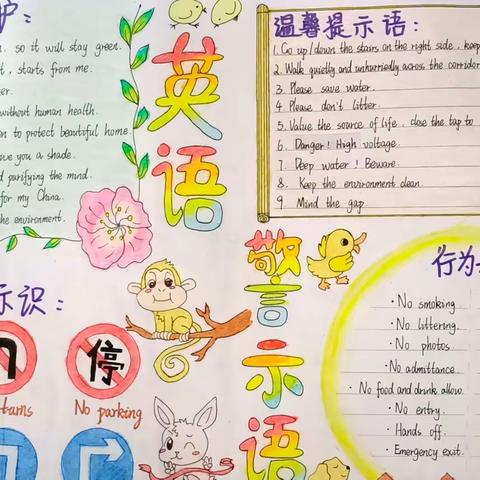 护:
so it will stay green.
, starts from me.
without human health.
to protect beautiful home.
you a shade.
purifying the mind.
for my China.
the environment.
英语
警示语
温馨提示语:
1. Go up/down the stairs on the right side, keep
2. Walk quietly and unhurriedly across the corridor
3. Please save water.
4. Please don't litter.
5. Value the source of life, close the tap to
6. Danger! High voltage.
7. Deep water! Beware.
8. Keep the environment clean.
9. Mind the gap.
示识:
停
No parking
行为
· No smoking.
· No littering.
· No photos.
· No admittance.
· No food and drink allow.
· No entry.
· Hands off.
· Emergency exit.